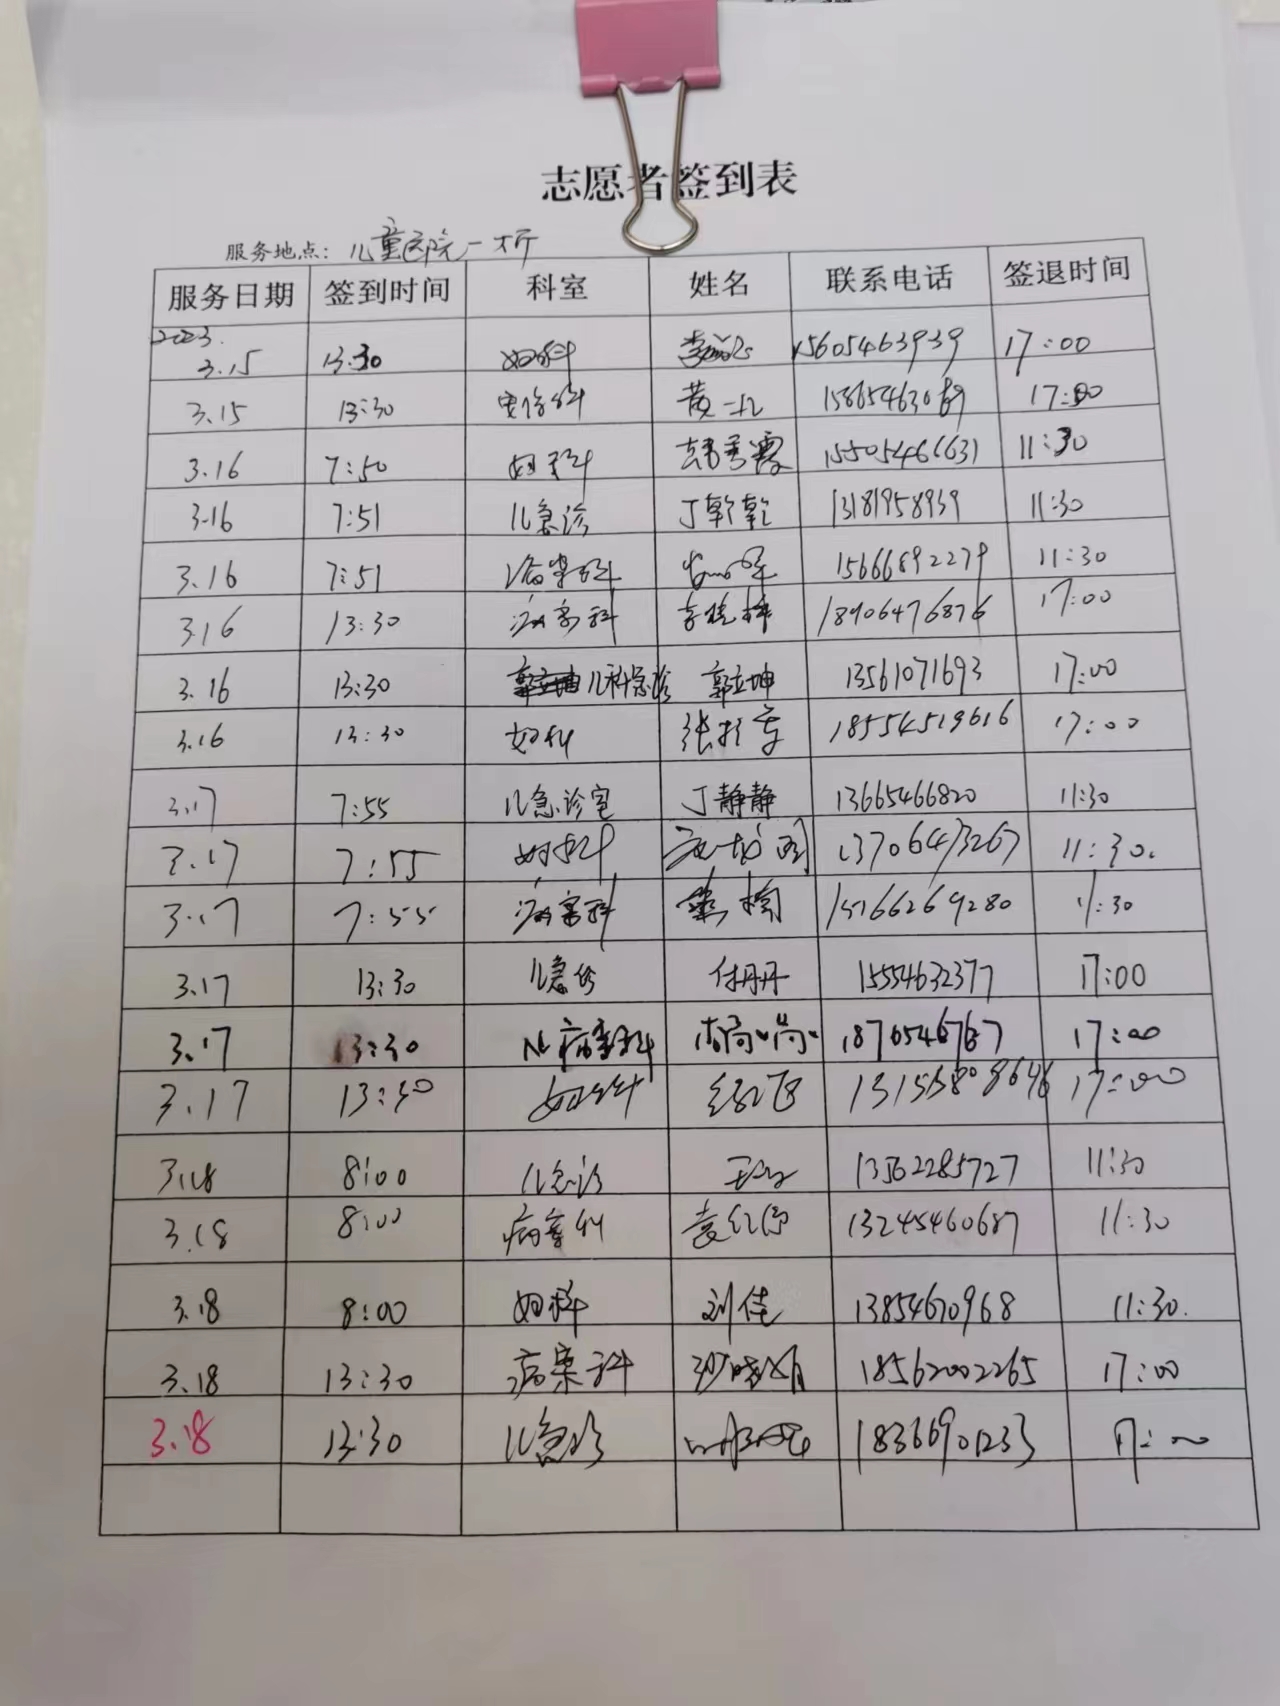 志愿者签到表
服务地点：儿童医院一大厅
服务日期 签到时间 科室 姓名 联系电话 签退时间
2023.
3.15 13:30 妇科 15605463939 17:00
3.15 13:30 黄 17:00
3.16 7:50 妇科 韩秀霞 15505466631 11:30
3.16 7:51 儿急诊 丁乾乾 13181958939 11:30
3.16 7:51 病案科 15666892279 11:30
3.16 13:30 病案科 18906476876 17:00
3.16 13:30 儿科急诊 郭立坤 13561071693 17:00
3.16 13:30 妇科 张 18554519616 17:00
3.17 7:55 儿急诊室 丁静静 13665466820 11:30
3.17 7:55 妇科 13706473267 11:30.
3.17 7:55 病案科 15166269280 11:30
3.17 13:30 儿急诊 付丹丹 15554632377 17:00
3.17 13:30 病案科 尚尚 1876546767 17:00
3.17 13:30 妇科 17:00
3.18 8:00 儿急诊 13562285727 11:30
3.18 8:00 病案科 袁红 13245460687 11:30
3.18 8:00 妇科 刘佳 13854670968 11:30.
3.18 13:30 病案科 18562002265 17:00
3.18 13:30 儿急诊 18366901233 17:00